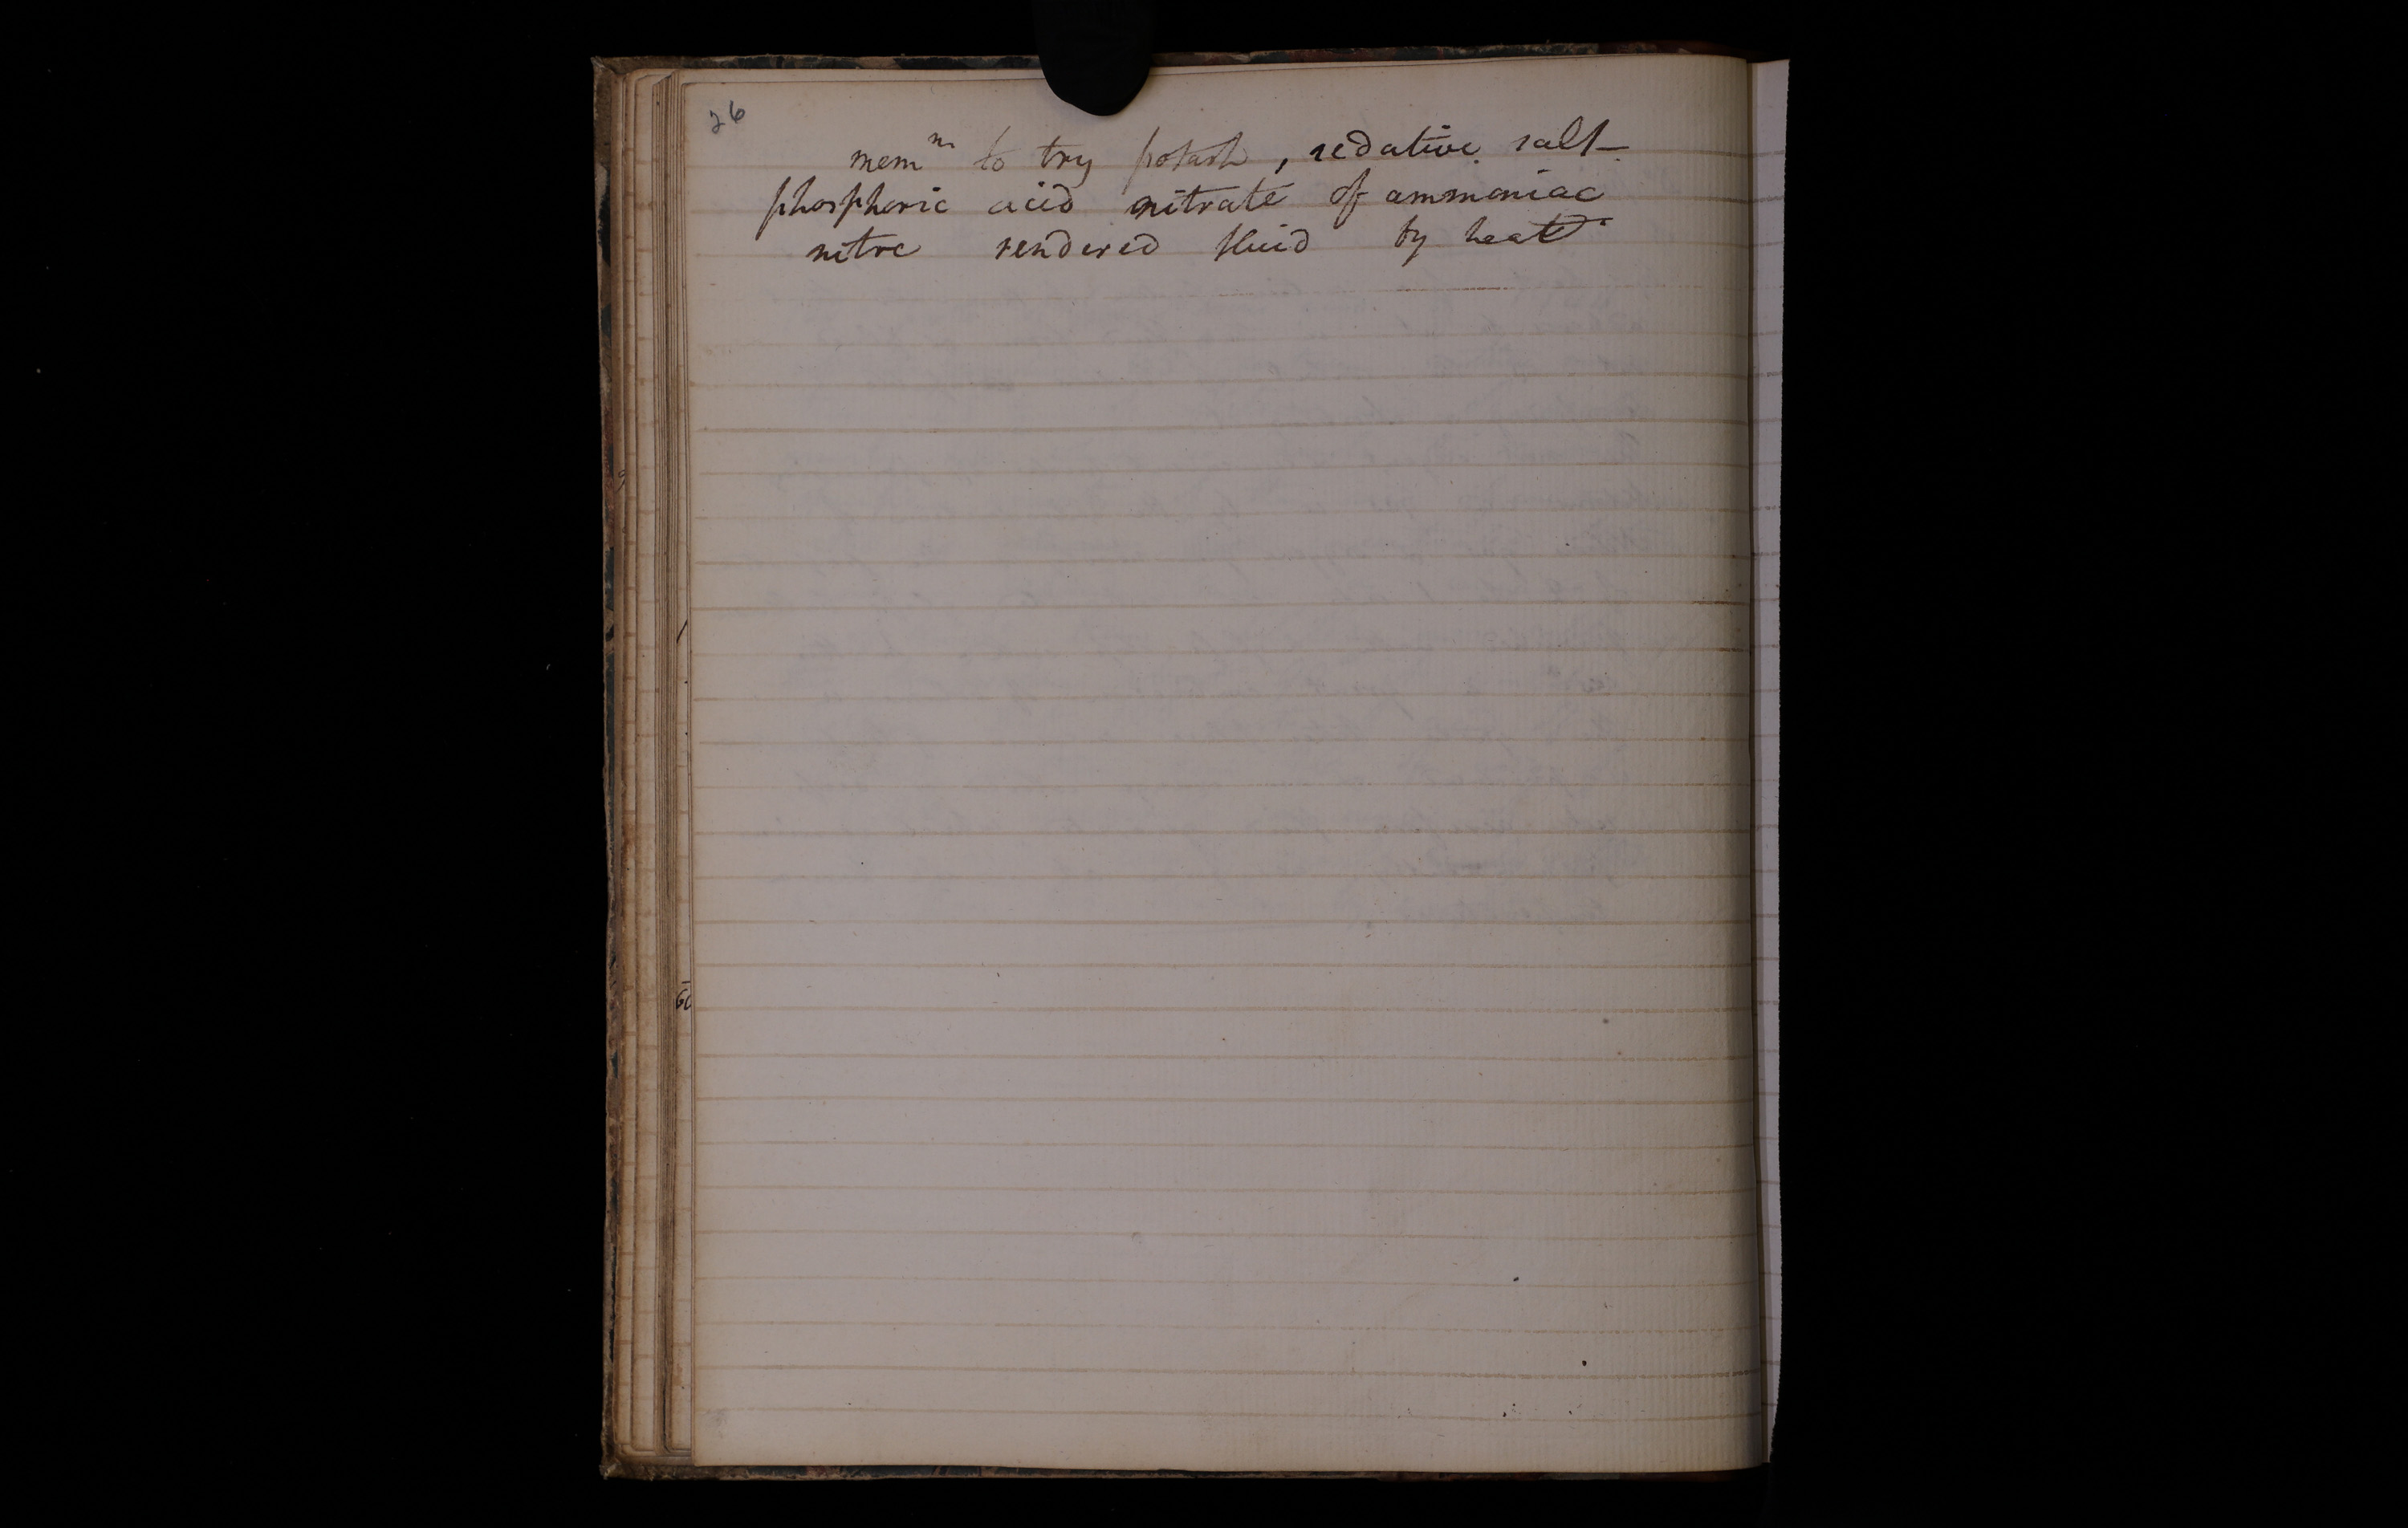 26
mem^m to try potash, sedative salt_
phosphoric acid nitrate of ammoniac
nitre rendered fluid by heat